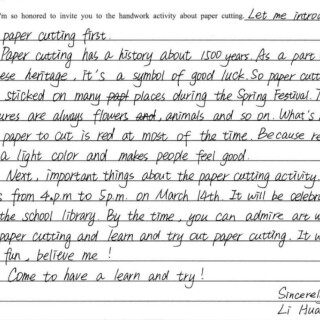 I'm so honored to invite you to the handwork activity about paper cutting. Let me introd
paper cutting first.
Paper cutting has a history about 1500 years. As a part
ese heritage, it's a symbol of good luck. So paper cutt
sticked on many places during the Spring Festival. T
ures are always flowers and, animals and so on. What's
paper to cut is red at most of the time. Because re
a light color and makes people feel good.
Next, important things about the paper cutting activity.
s from 4.p.m to 5p.m. on March 14th. It will be celebr
the school library. By the time, you can admire art w
paper cutting and learn and try out paper cutting. It w
fun, believe me !
Come to have a learn and try !
Sincerel
Li Hua